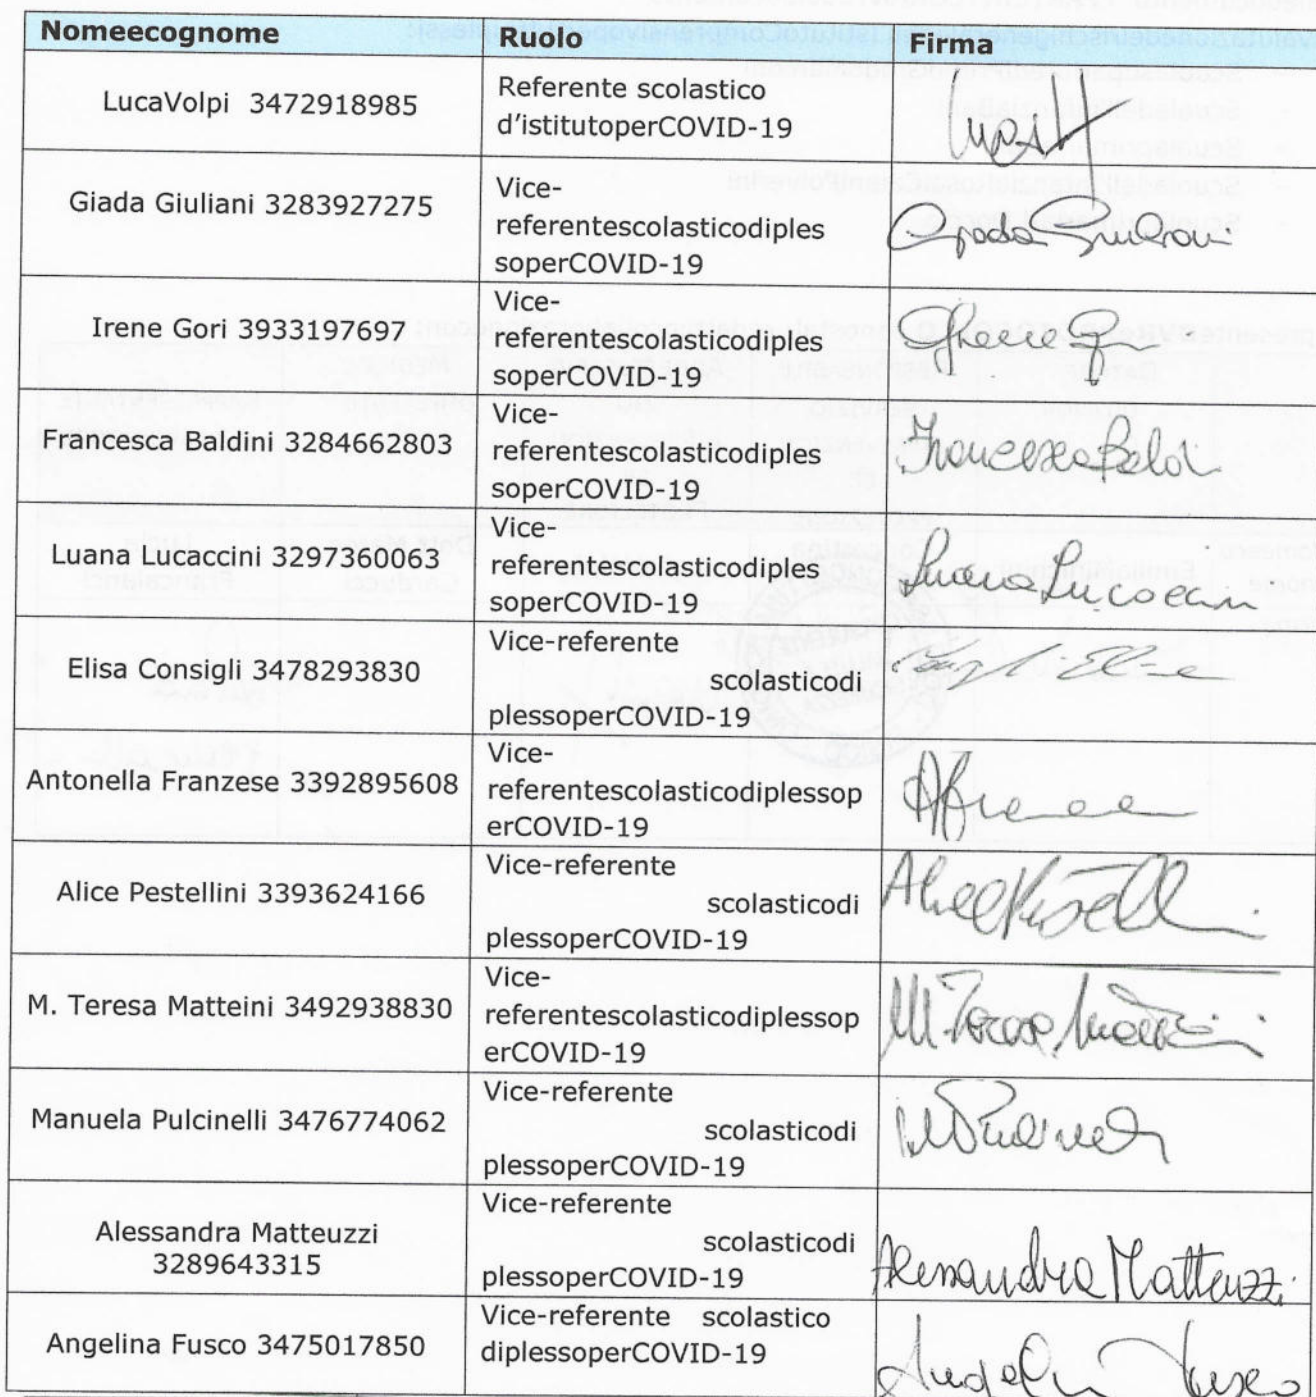 Nomeecognome Ruolo Firma
LucaVolpi 3472918985
Referente scolastico
d'istitutoperCOVID-19
Giada Giuliani 3283927275
Vice-
referentescolasticodiples
soperCOVID-19
Giada Giuliani
Irene Gori 3933197697
Vice-
referentescolasticodiples
soperCOVID-19
Francesca Baldini 3284662803
Vice-
referentescolasticodiples
soperCOVID-19
Luana Lucaccini 3297360063
Vice-
referentescolasticodiples
soperCOVID-19
Luana Lucaccini
Elisa Consigli 3478293830
Vice-referente
scolasticodi
plessoperCOVID-19
Antonella Franzese 3392895608
Vice-
referentescolasticodiplessop
erCOVID-19
Alice Pestellini 3393624166
Vice-referente
scolasticodi
plessoperCOVID-19
M. Teresa Matteini 3492938830
Vice-
referentescolasticodiplessop
erCOVID-19
Manuela Pulcinelli 3476774062
Vice-referente
scolasticodi
plessoperCOVID-19
Alessandra Matteuzzi
3289643315
Vice-referente
scolasticodi
plessoperCOVID-19
Alessandra Matteuzzi
Angelina Fusco 3475017850
Vice-referente scolastico
diplessoperCOVID-19